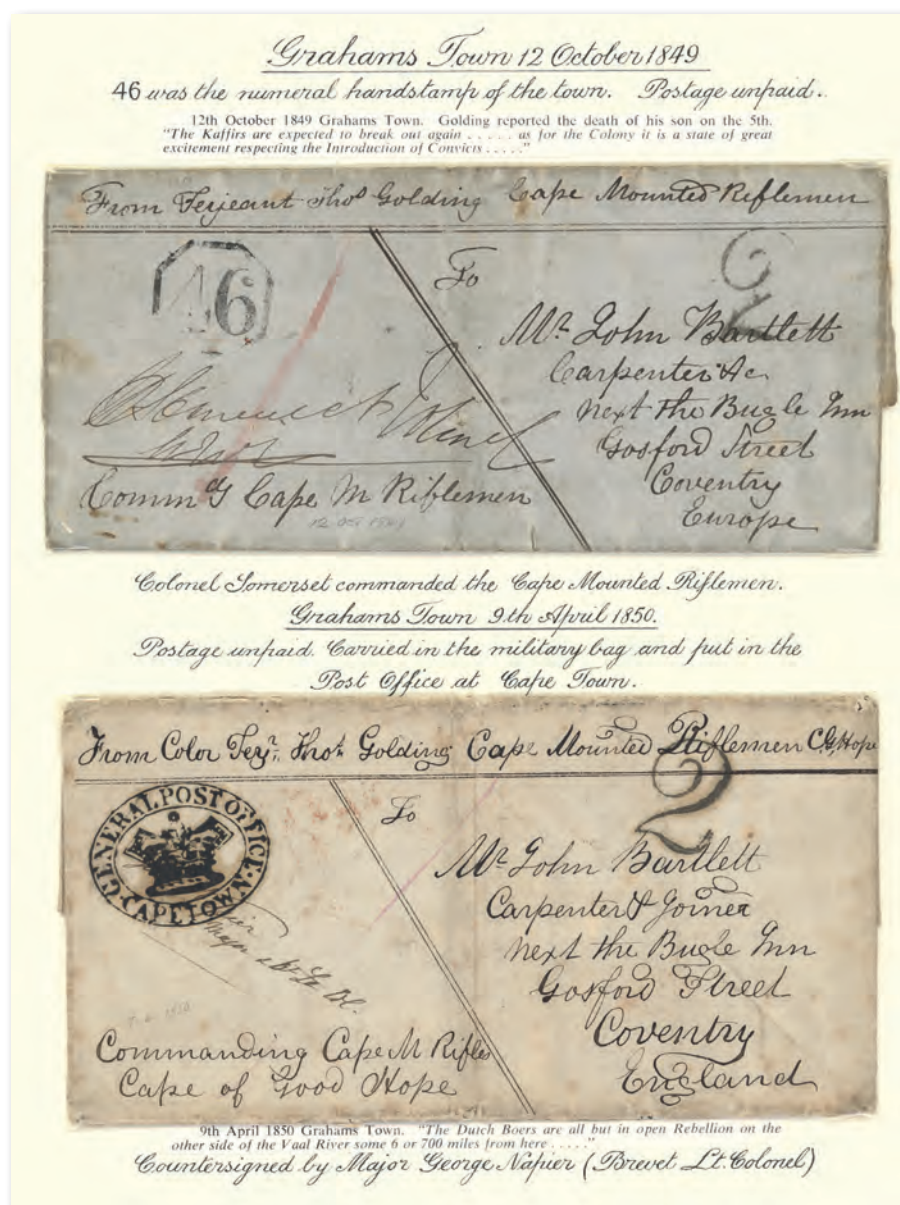 Grahams Town 12 October 1849
46 was the numeral handstamp of the town. Postage unpaid.
12th October 1849 Grahams Town. Golding reported the death of his son on the 5th.
"The Kaffirs are expected to break out again . . . . . as for the Colony it is a state of great
excitement respecting the Introduction of Convicts . . . . ."
From Serjeant Thos Golding Cape Mounted Riflemen
46
To
2
Mr. John Bartlett
Carpenter &c
next the Bugle Inn
Gosford Street
Coventry
Europe
Commg Cape M Riflemen
Colonel Somerset commanded the Cape Mounted Riflemen.
Grahams Town 9th April 1850.
Postage unpaid. Carried in the military bag and put in the
Post Office at Cape Town.
From Color Serjt. Thos Golding Cape Mounted Riflemen C.G. Hope
GENERAL POST OFFICE
CAPE TOWN
To
2
Mr John Bartlett
Carpenter & Joiner
next the Bugle Inn
Gosford Street
Coventry
England
Major & Bt Lt Col.
Commanding Cape M Rifles
Cape of Good Hope
9th April 1850 Grahams Town. "The Dutch Boers are all but in open Rebellion on the
other side of the Vaal River some 6 or 700 miles from here . . . . ."
Countersigned by Major George Napier (Brevet Lt. Colonel)